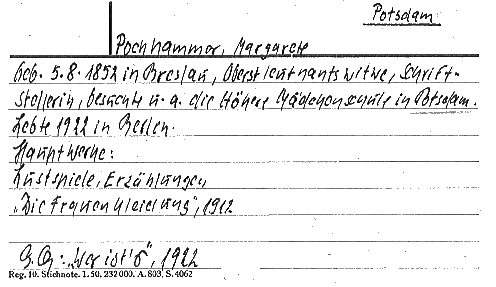 Potsdam
Pochhammer, Margarete
Geb. 5.8.1852 in Breslau, Oberstleutnantswitwe, Schrift-
stellerin, besuchte u. a. die Höhere Mädchenschule in Potsdam.
Lebte 1922 in Berlin.
Hauptwerke:
Lustspiele, Erzählungen
"Die Frauenkleidung", 1912
"Wer ist's", 1922
Reg. 10. Stichnote. 1. 50. 232000. A. 803. S. 4062